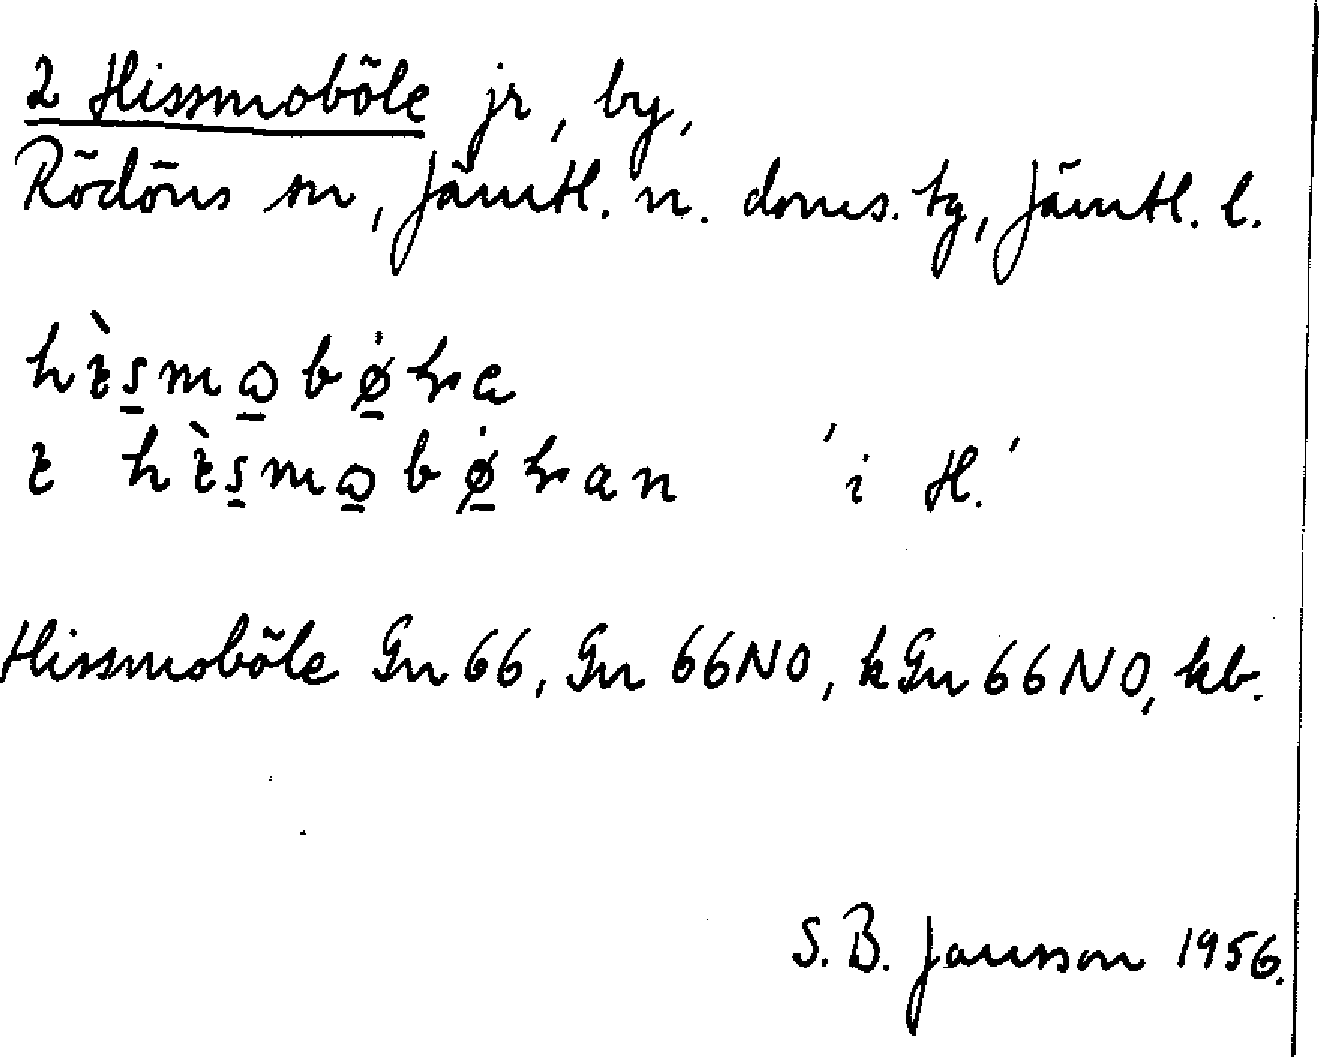 2 Hissmoböle jr, by,
Rödöns sn, Jämtl. n. doms. tg, Jämtl. l.
'i H.'
Hissmoböle Gn 66, Gn 66NO, kGn 66NO, kb.
S. B. Jansson 1956.